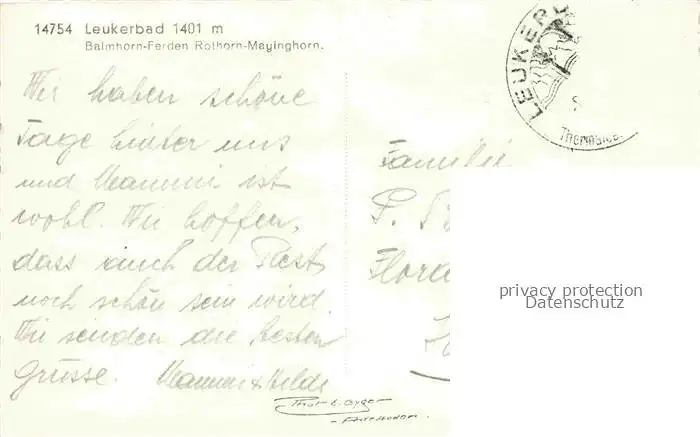 14754 Leukerbad 1401 m
Balmhorn-Ferden Rothorn-Mayinghorn.
Wir haben schöne
Tage hinter uns
und Mammi ist
wohl. Wir hoffen,
dass auch der Rest
noch schön sein wird.
Wir senden die besten
Grüsse. Mammi & Hilde
LEUKER
Familie
P.
privacy protection
Datenschutz
Phot. E. Gyger
- Adelboden.